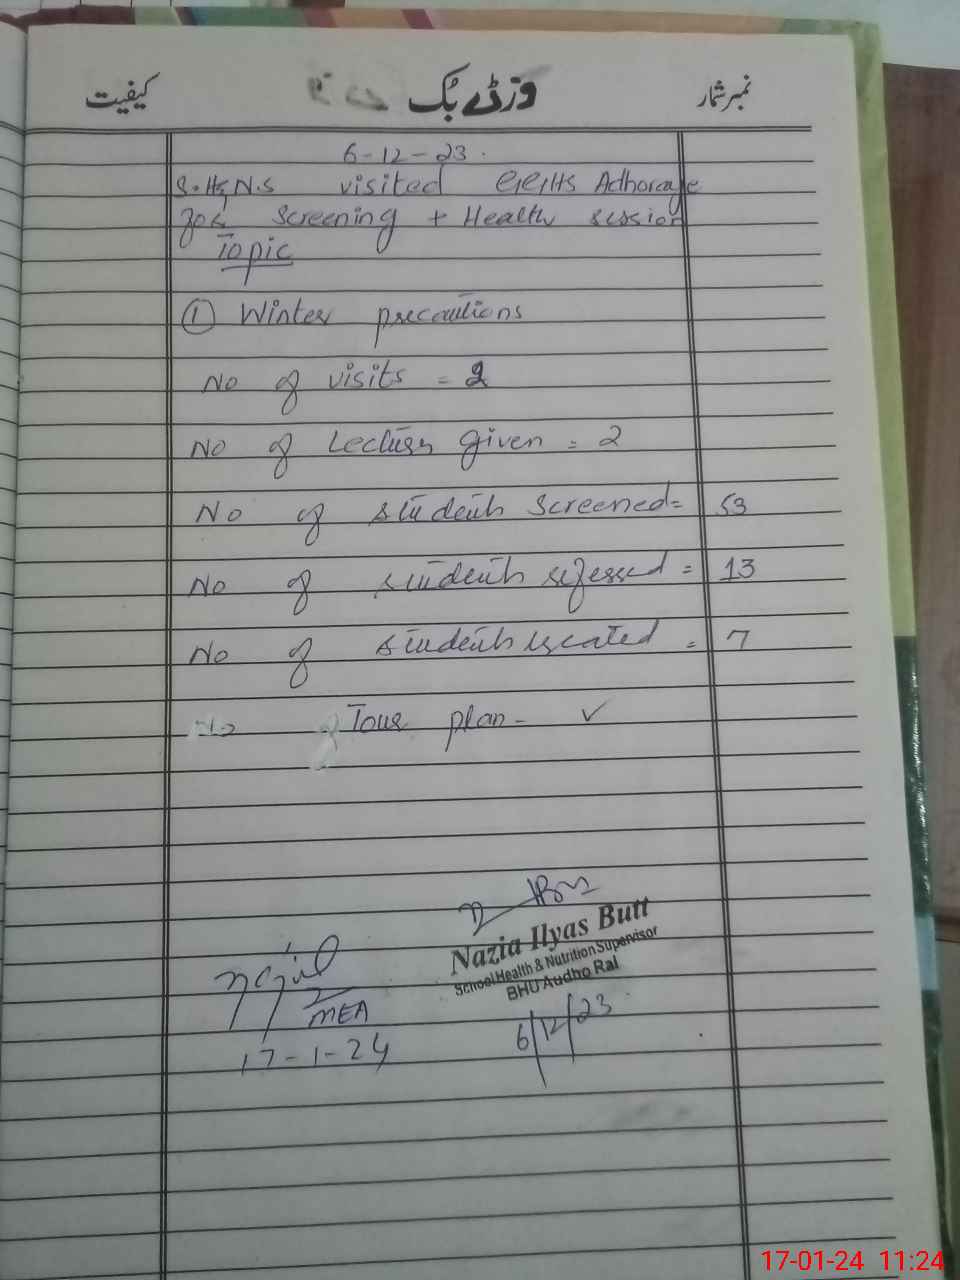 نمبر شمار وزٹ بُک کیفیت
6-12-23.
S.H&N.S visited GGHS Adhoraye
for Screening + Health session
Topic
① Winter precautions
No of visits = 2
No of Lectures given = 2
No of students Screened = 53
No of students referred = 13
No of students treated = 7
Tour plan - ✓
Nazia Ilyas Butt
School Health & Nutrition Supervisor
BHU Audho Rai
6/12/23
MEA
17-1-24
17-01-24 11:24